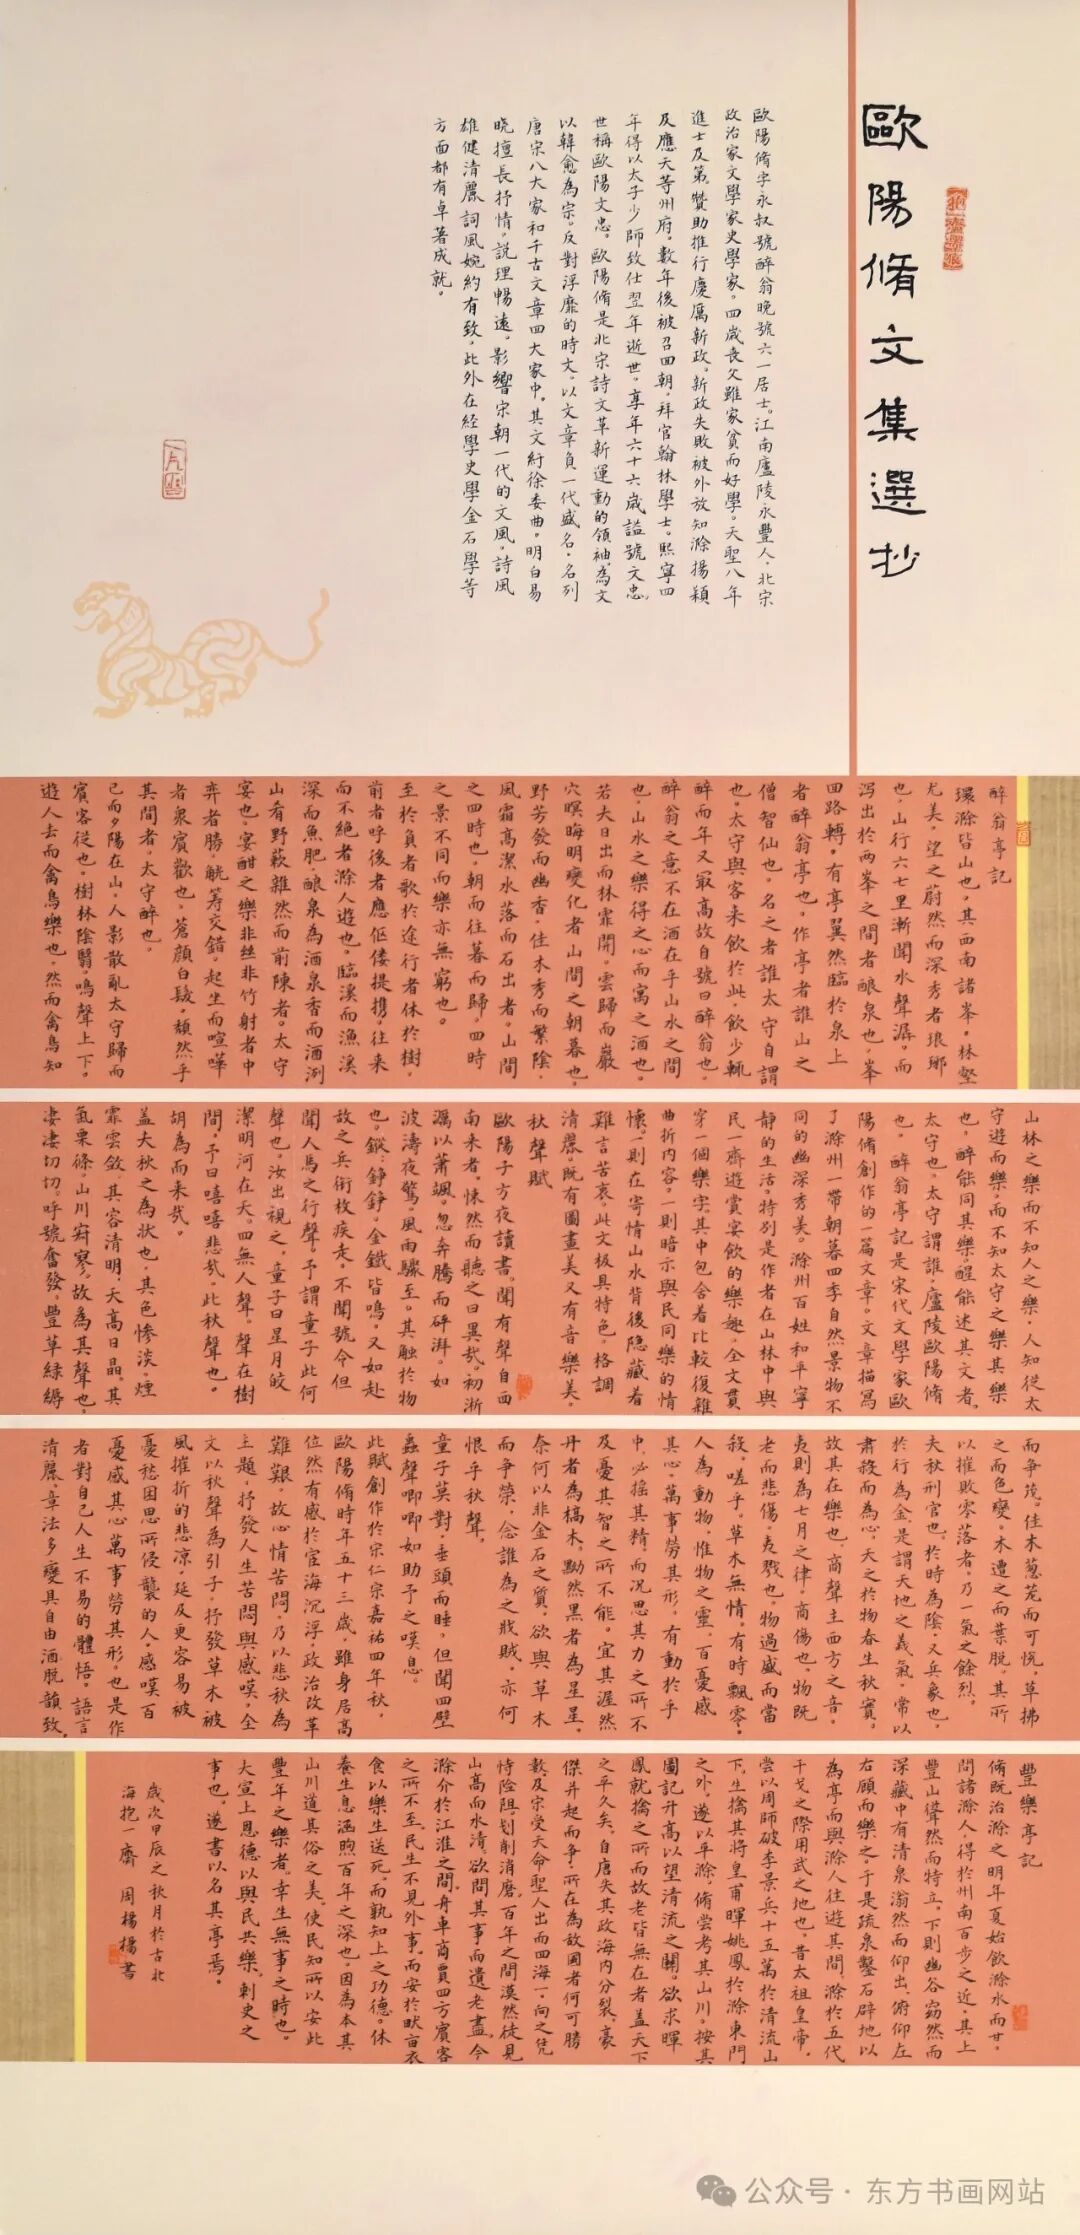 歐陽脩文集選抄
歐陽脩字永叔號醉翁晚號六一居士。江南廬陵永豐人，北宋
政治家文學家史學家。四歲喪父雖家貧而好學。天聖八年
進士及第，贊助推行慶厲新政。新政失敗被外放知滁揚潁
及應天等州府。數年後被召回朝，拜官翰林學士。熙寧四
年得以太子少師致仕翌年逝世。享年六十六歲謚號文忠，
世稱歐陽文忠。歐陽脩是北宋詩文革新運動的領袖，為文
以韓愈為宗。反對浮靡的時文。以文章負一代盛名，名列
唐宋八大家和千古文章四大家中。其文紆徐委曲。明白易
曉擅長抒情。說理暢達。影響宋朝一代的文風。詩風
雄健清麗詞風婉約有致。此外在經學史學金石學等
方面都有卓著成就。
醉翁亭記
環滁皆山也。其西南諸峯。林壑
尤美，望之蔚然而深秀者琅琊
也，山行六七里漸聞水聲潺，而
瀉出於兩峯之間者釀泉也，峯
回路轉。有亭翼然臨於泉上
者醉翁亭也。作亭者誰山之
僧智仙也。名之者誰太守自謂
也。太守與客來飲於此，飲少輒
醉而年又最高故自號曰醉翁也。
醉翁之意不在酒在乎山水之間
也，山水之樂得之心而寓之酒也。
若夫日出而林霏開。雲歸而巖
穴暝晦明變化者山間之朝暮也。
野芳發而幽香，佳木秀而繁陰，
風霜高潔水落而石出者，山間
之四時也。朝而往暮而歸，四時
之景不同而樂亦無窮也。
至於負者歌於途行者休於樹，
前者呼後者應傴僂提携，往來
而不絕者滁人遊也。臨溪而漁溪
深而魚肥，釀泉為酒泉香而酒洌
山肴野蔌雜然而前陳者。太守
宴也。宴酣之樂非絲非竹射者中
弈者勝，觥籌交錯。起坐而喧嘩
者衆賓歡也。蒼顏白髮，頹然乎
其間者，太守醉也。
已而夕陽在山，人影散亂太守歸而
賓客從也。樹林陰翳。鳴聲上下。
遊人去而禽鳥樂也，然而禽鳥知
山林之樂而不知人之樂，人知從太
守遊而樂，而不知太守之樂其樂
也，醉能同其樂，醒能述其文者，
太守也。太守謂誰，廬陵歐陽脩
也。醉翁亭記是宋代文學家歐
陽脩創作的一篇文章。文章描寫
了滁州一帶朝暮四季自然景物不
同的幽深秀美。滁州百姓和平寧
靜的生活。特別是作者在山林中與
民一齊遊賞宴飲的樂趣。全文貫
穿一個樂字。其中包含着比較復雜
曲折内容。一則暗示與民同樂的情
懷。一則在寄情山水背後隱藏着
難言苦衷。此文極具特色。格調
清麗。既有圖畫美又有音樂美。
秋聲賦
歐陽子方夜讀書。聞有聲自西
南來者。悚然而聽之曰異哉。初淅
瀝以蕭颯。忽奔騰而砰湃。如
波濤夜驚。風雨驟至。其觸於物
也。鏦鏦錚錚。金鐵皆鳴。又如赴
敵之兵銜枚疾走，不聞號令但
聞人馬之行聲。予謂童子此何
聲也。汝出視之，童子曰星月皎
潔明河在天。四無人聲。聲在樹
間，予曰嘻嘻悲哉，此秋聲也。
胡為而來哉。
盖夫秋之為狀也，其色慘淡，煙
霏雲斂，其容清明，天高日晶。其
氣栗慄，山川寂寥。故為其聲也，
凄凄切切。呼號奮發，豐草綠縟
而爭茂。佳木葱蘢而可悅，草拂
之而色變。木遭之而葉脫。其所
以摧敗零落者。乃一氣之餘烈。
夫秋刑官也，於時為陰，又兵象也，
於行為金，是謂天地之義氣。常以
肅殺而為心。天之於物春生秋實，
故其在樂也，商聲主西方之音，
夷則為七月之律。商傷也。物既
老而悲傷，夷戮也。物過盛而當
殺。嗟乎。草木無情。有時飄零。
人為動物，惟物之靈，百憂感
其心。萬事勞其形，有動於乎
中，必搖其精。而況思其力之所不
及憂其智之所不能。宜其渥然
丹者為槁木。黝然黑者為星星，
奈何以非金石之質，欲與草木
而爭榮，念誰為之戕賊，亦何
恨乎秋聲。
童子莫對，垂頭而睡，但聞四壁
蟲聲唧唧如助予之嘆息。
此賦創作於宋仁宗嘉祐四年秋，
歐陽脩時年五十三歲，雖身居高
位然有感於宦海沉浮。政治改革
難艱，故心情苦悶，乃以悲秋為
主題，抒發人生苦悶與感嘆。全
文以秋聲為引子，抒發草木被
風摧折的悲凉，延及更容易被
憂愁困思所侵襲的人，感嘆百
憂感其心萬事勞其形。也是作
者對自己人生不易的體悟。語言
清麗，章法多變具自由洒脫韻致。
豐樂亭記
脩既治滁之明年夏始飲滁水而甘。
問諸滁人，得於州南百步之近，其上
豐山聳然而特立。下則幽谷窈然而
深藏中有清泉滃然而仰出，俯仰左
右顧而樂之，于是疏泉鑿石辟地以
為亭而與滁人往遊其間，滁於五代
干戈之際用武之地也，昔太祖皇帝，
嘗以周師破李景兵十五萬於清流山
下。生擒其將皇甫暉姚鳳於滁東門
之外，遂以平滁，脩嘗考其山川。按其
圖記升高以望清流之關，欲求暉
鳳就擒之所而故老皆無在者蓋天下
之平久矣。自唐失其政海内分裂，豪
傑并起而爭，所在為敵國者何可勝
數，及宋受天命聖人出而四海一，向之凭
恃險阻，刬削消磨。百年之間漠然徒見
山高而水清，欲問其事而遺老盡，今
滁介於江淮之間，舟車商賈四方賓客
之所不至，民生不見外事，而安於畎亩衣
食以樂生送死，而孰知上之功德。休
養生息涵煦百年之深也。因為本其
山川道其俗之美，使民知所以安此
豐年之樂者。幸生無事之時也。
大宣上恩德以與民共樂，刺史之
事也，遂書以名其亭焉。
歲次甲辰之秋月於古北
海抱一齋周楊揚書
公众号·东方书画网站